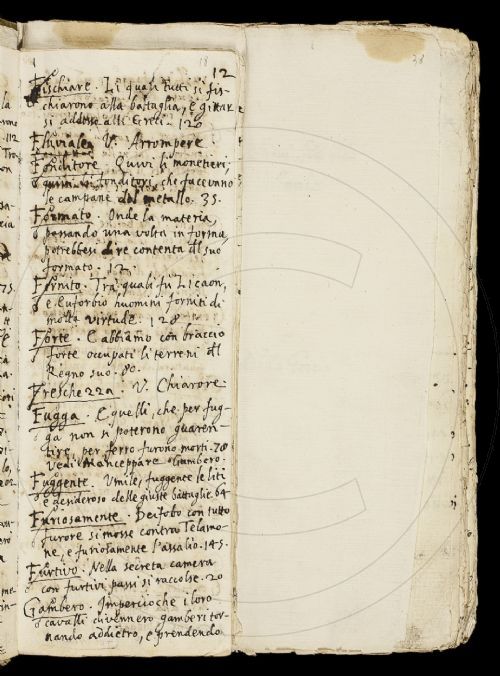 18
12
38
Fischiare. Li quali tutti si fis-
chiarono alla battaglia, e gittar
si addosso alli Greci. 126
Fluviale V. Arrompere.
Fonditore. Quivi li monetieri,
quivi li fonditori, che facevano
le campane del metallo. 35.
Formato. Onde la materia,
passando una volta in forma,
potrebbesi dire contenta del suo
formato. 12.
Fornito. Tra quali fu Licaon,
e Euforbio huomini forniti di
molta virtude. 128
Forte. E abbiamo con braccio
forte occupati li terreni del
Regno suo. 80.
Freschezza. V. Chiarore.
Fugga. E quelli, che per fug-
ga non si poterono guaren-
tire, per ferro furono morti. 78
Vedi Manceppare Gambero.
Fuggente. Umile, fuggente le liti
e desideroso delle giuste battaglie. 64
Furiosamente. Deifobo con tutto
furore si mosse contra Telamo-
ne, e furiosamente l'assalio. 145.
Furtivo. Nella secreta camera
con furtivi passi si raccolse. 20
Gambero. Impercioche i loro
cavalli divennero gamberi tor-
nando addietro, e prendendo